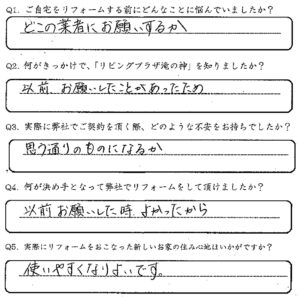 Q1. ご自宅をリフォームする前にどんなことに悩んでいましたか？
どこの業者にお願いするか
Q2. 何がきっかけで、「リビングプラザ滝の神」を知りましたか？
以前、お願いしたことがあったため
Q3. 実際に弊社でご契約を頂く際、どのような不安をお持ちでしたか？
思う通りのものになるか
Q4. 何が決め手となって弊社でリフォームをして頂けましたか？
以前お願いした時よかったから
Q5. 実際にリフォームをおこなった新しいお家の住み心地はいかがですか？
使いやすくなりよいです。